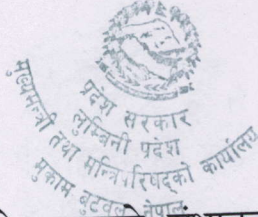 प्रदेश सरकार
लुम्बिनी प्रदेश
मुख्यमन्त्री तथा मन्त्रिपरिषद्को कार्यालय
मुकाम बुटवल नेपाल